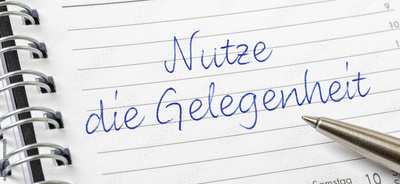 Nutze
die Gelegenheit
9
10
Samstag
10